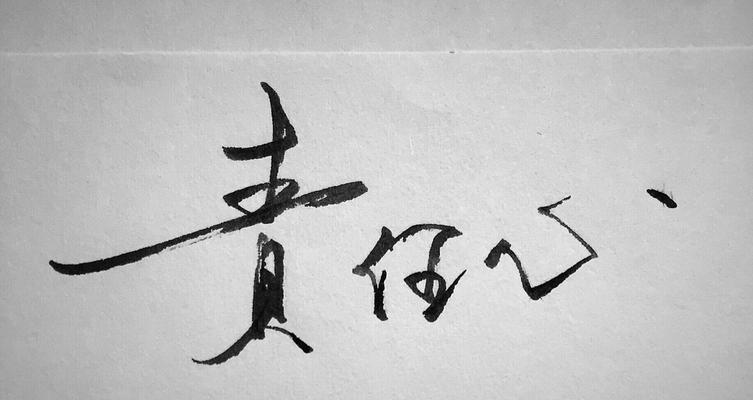 责任心